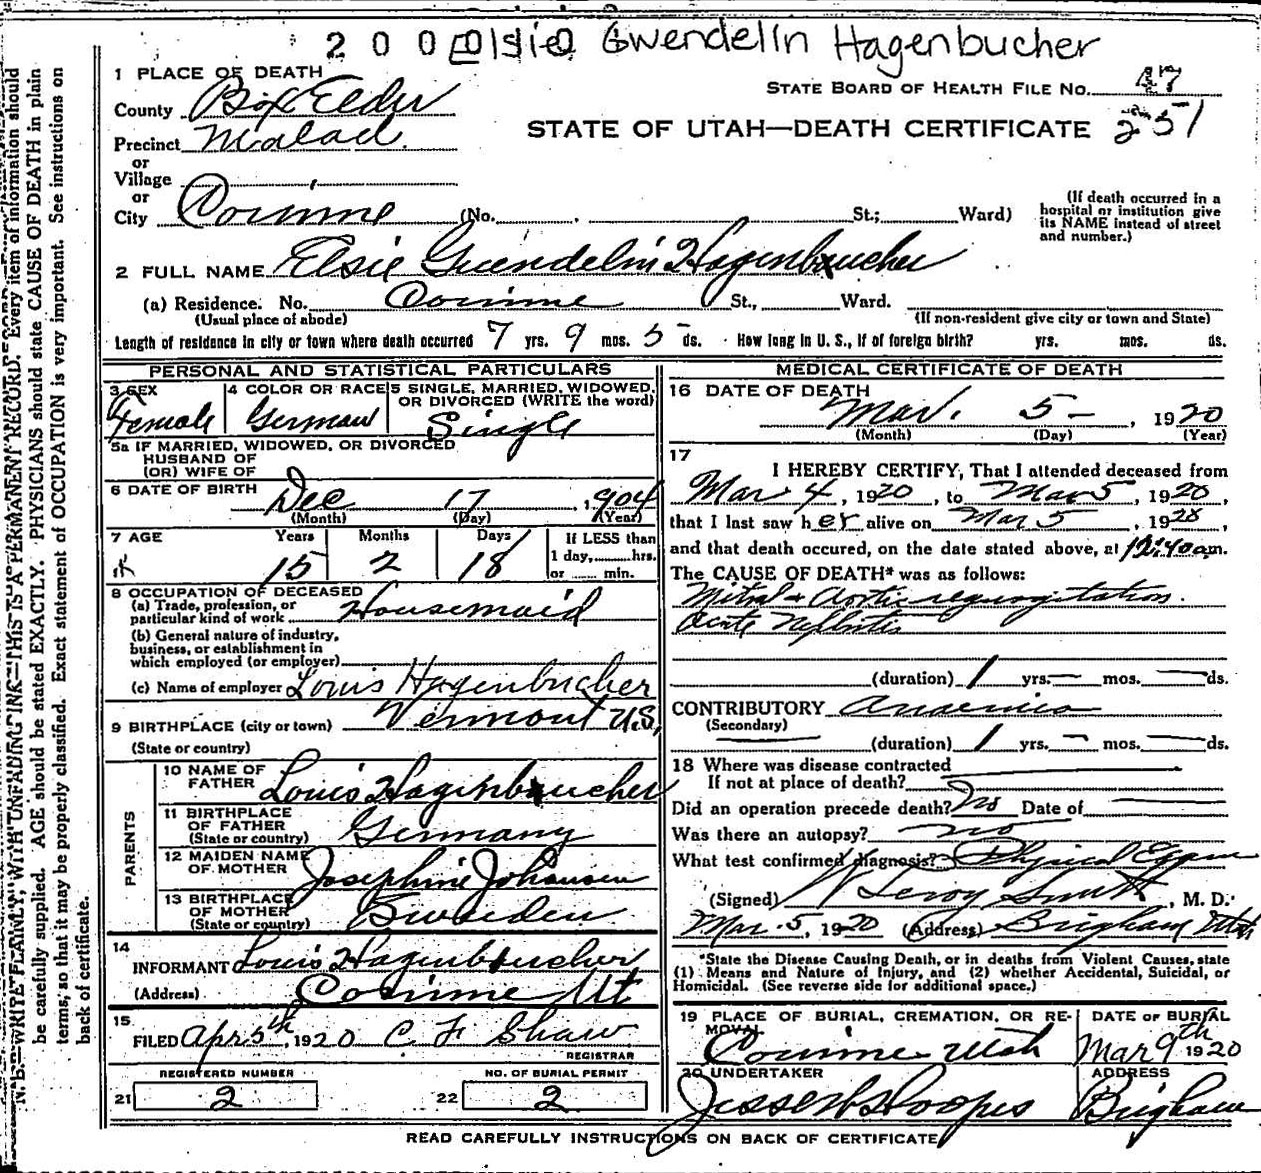 Elsie Gwendelin Hagenbucher
1 PLACE OF DEATH
STATE BOARD OF HEALTH FILE No. 47
County Box Elder
STATE OF UTAH—DEATH CERTIFICATE 251
Precinct Malad
or
Village
or
City Corinne (No. St.; Ward)
(If death occurred in a
hospital or institution give
its NAME instead of street
and number.)
2 FULL NAME Elsie Gwendelin Hagenbucher
(a) Residence. No. Corinne St., Ward.
(Usual place of abode) (If non-resident give city or town and State)
Length of residence in city or town where death occurred 7 yrs. 9 mos. 5 ds. How long in U. S., if of foreign birth? yrs. mos. ds.
PERSONAL AND STATISTICAL PARTICULARS
3 SEX 4 COLOR OR RACE 5 SINGLE, MARRIED, WIDOWED,
OR DIVORCED (WRITE the word)
Female German Single
5a IF MARRIED, WIDOWED, OR DIVORCED
HUSBAND OF
(OR) WIFE OF
6 DATE OF BIRTH Dec 17, 1904
(Month) (Day) (Year)
7 AGE Years Months Days If LESS than
1 day, hrs.
15 2 18 or min.
8 OCCUPATION OF DECEASED
(a) Trade, profession, or
particular kind of work Housemaid
(b) General nature of industry,
business, or establishment in
which employed (or employer)
(c) Name of employer Louis Hagenbucher
9 BIRTHPLACE (city or town) Vermont U.S.
(State or country)
PARENTS
10 NAME OF
FATHER Louis Hagenbucher
11 BIRTHPLACE
OF FATHER
(State or country) Germany
12 MAIDEN NAME
OF MOTHER Josephine Johansen
13 BIRTHPLACE
OF MOTHER
(State or country) Sweeden
14
INFORMANT Louis Hagenbucher
(Address) Corinne Ut
15
FILED Apr 5th, 1920 C F Shaw
REGISTRAR
REGISTERED NUMBER NO. OF BURIAL PERMIT
21 2 22 2
MEDICAL CERTIFICATE OF DEATH
16 DATE OF DEATH
Mar. 5 - , 1920
(Month) (Day) (Year)
17
I HEREBY CERTIFY, That I attended deceased from
Mar 4, 1920, to Mar 5, 1920,
that I last saw her alive on Mar 5, 1920,
and that death occured, on the date stated above, at 12:40 am.
The CAUSE OF DEATH* was as follows:
Mitral & Aortic regurgitation.
Acute Nefbritis
(duration) 1 yrs. — mos. — ds.
CONTRIBUTORY Anaemia
(Secondary)
(duration) 1 yrs. — mos. — ds.
18 Where was disease contracted
If not at place of death?
Did an operation precede death? No Date of
Was there an autopsy? no
What test confirmed diagnosis? Physical Exam
(Signed) W Leroy Smith, M. D.
Mar. 5, 1920 (Address) Brigham Utah
*State the Disease Causing Death, or in deaths from Violent Causes, state
(1) Means and Nature of Injury, and (2) whether Accidental, Suicidal, or
Homicidal. (See reverse side for additional space.)
19 PLACE OF BURIAL, CREMATION, OR RE-
MOVAL DATE OF BURIAL
Corinne Utah Mar 9th 1920
20 UNDERTAKER ADDRESS
Brigham
READ CAREFULLY INSTRUCTIONS ON BACK OF CERTIFICATE
N. B.—WRITE PLAINLY, WITH UNFADING INK—THIS IS A PERMANENT RECORD. Every item of information should
be carefully supplied. AGE should be stated EXACTLY. PHYSICIANS should state CAUSE OF DEATH in plain
terms, so that it may be properly classified. Exact statement of OCCUPATION is very important. See instructions on
back of certificate.